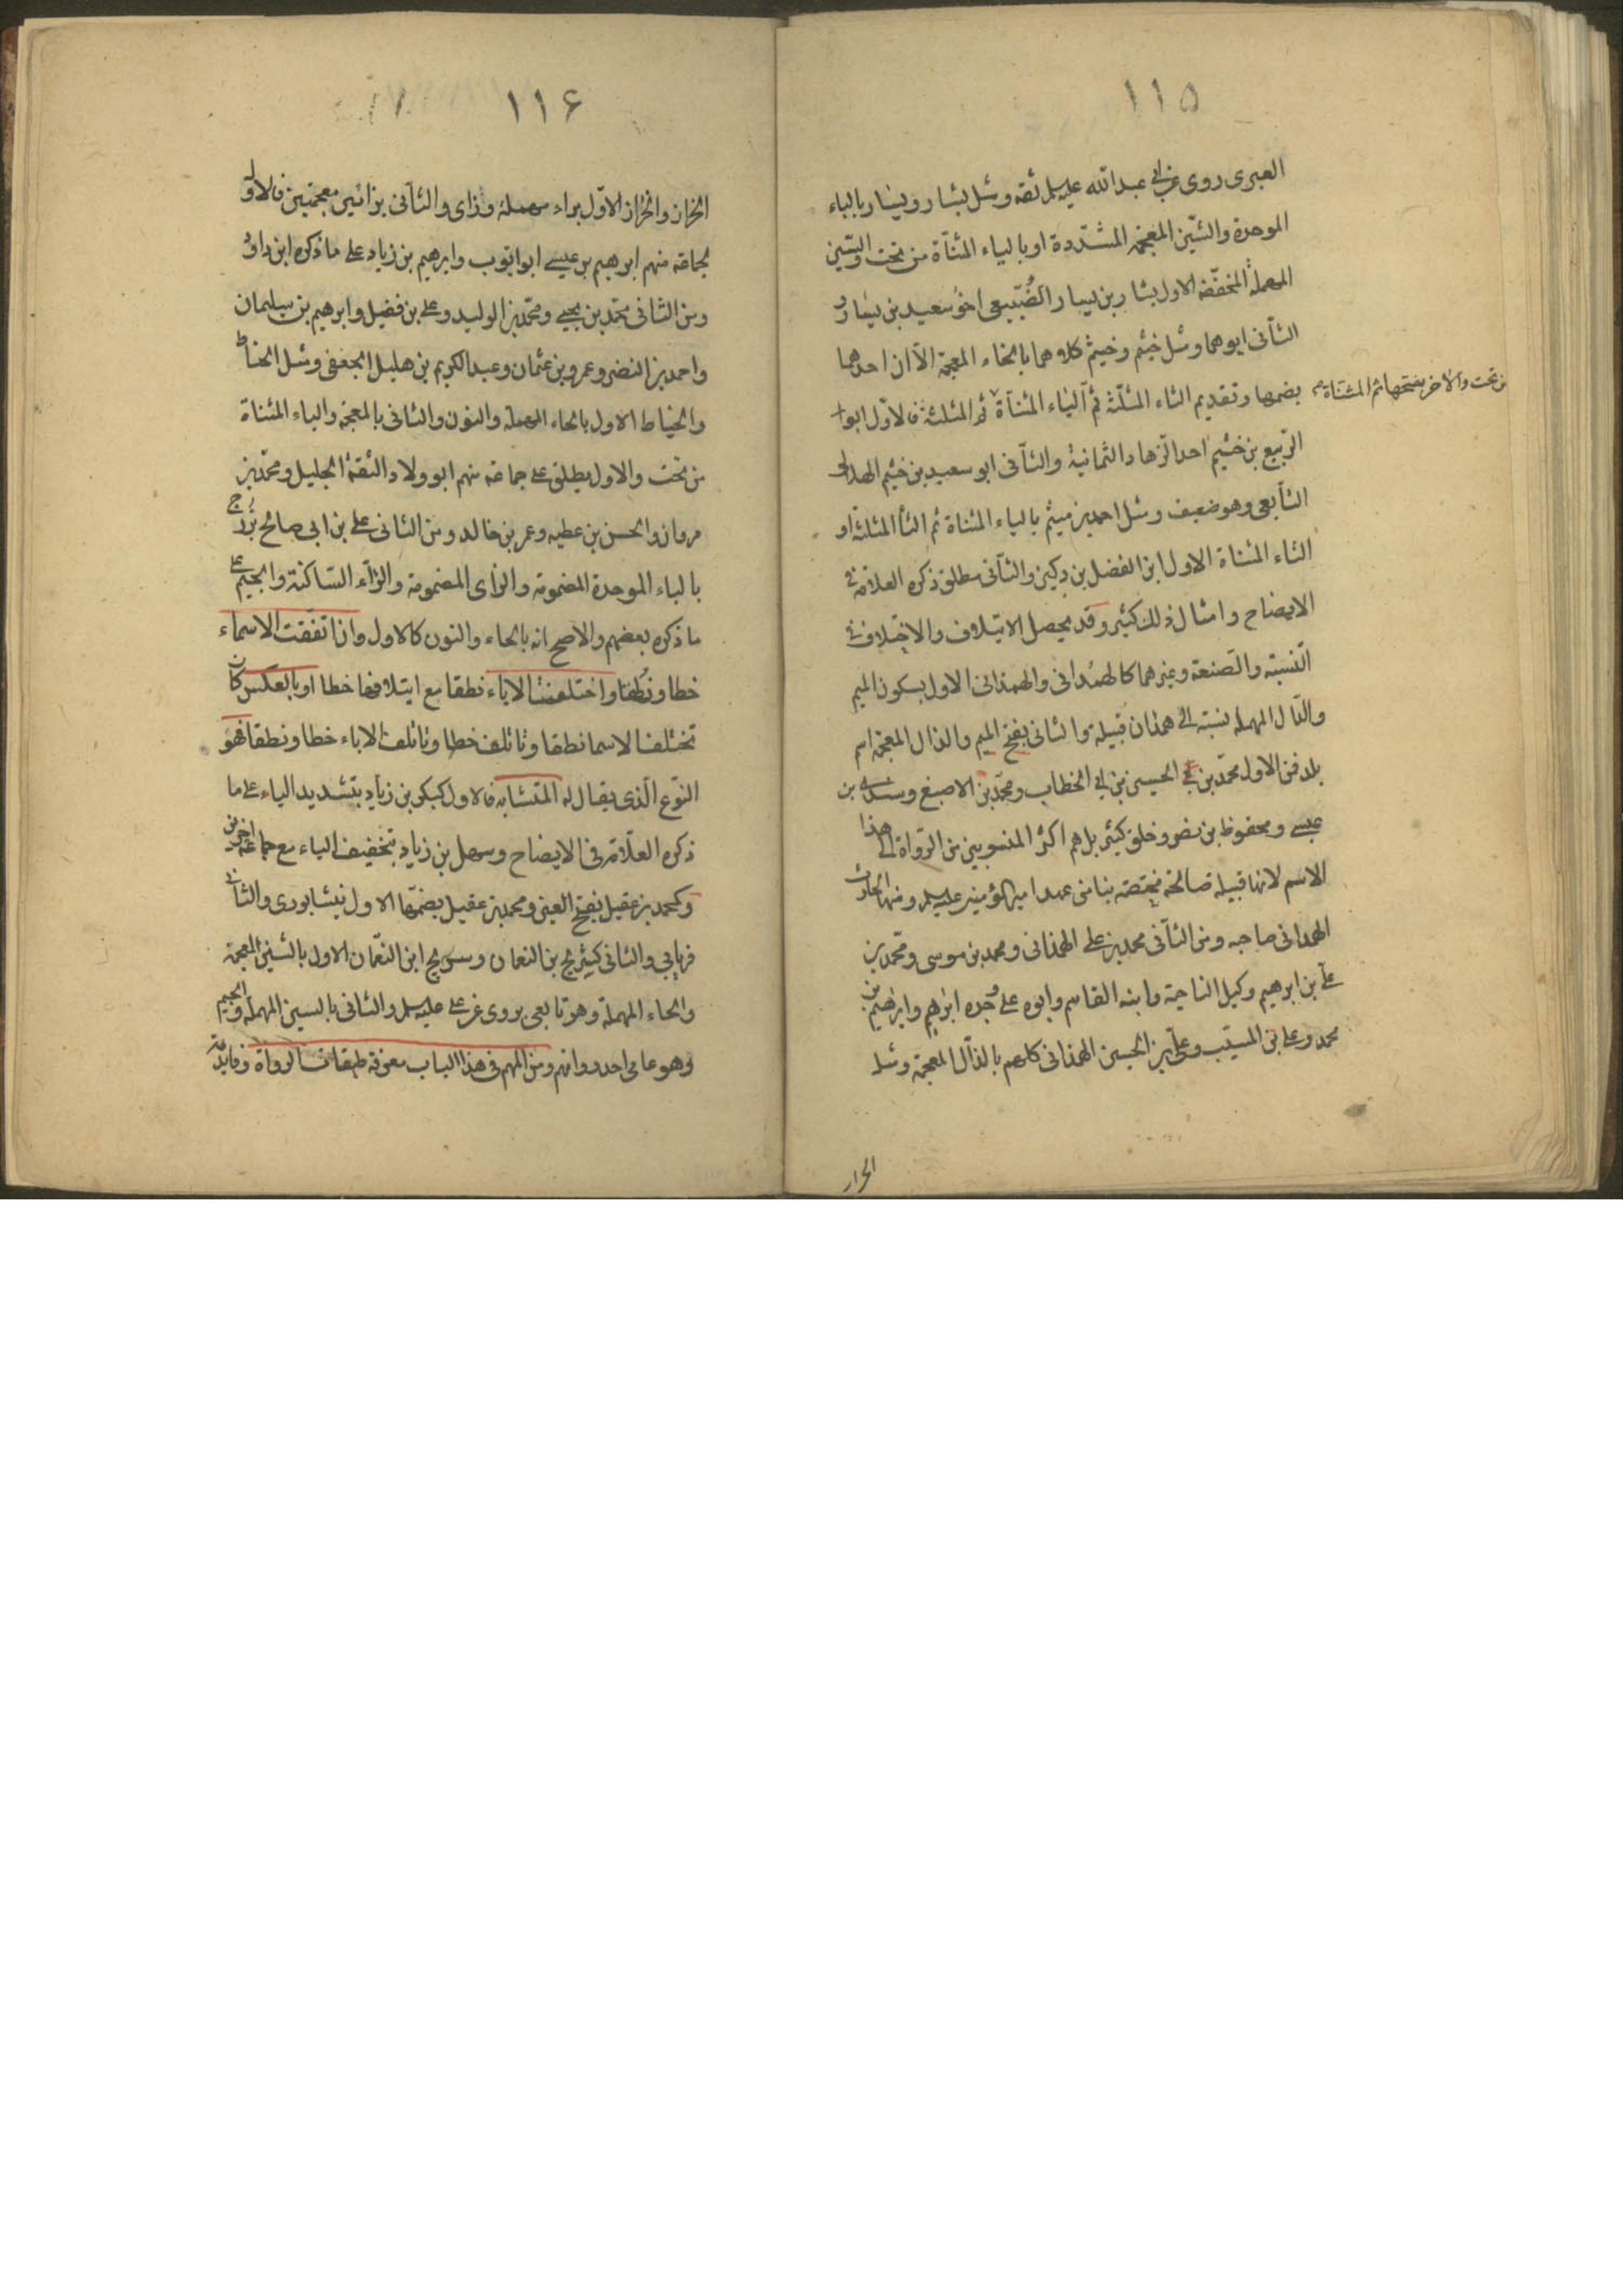 ١١۵
العبرى روى عن ابى عبد الله عليه السلم ثقه ومثل بشار ويسار بالباء
الموحدة والشين المعجمة المشددة او بالياء المثناة من تحت والسين
المهملة المخففة الاول بشار بن يسار الضبيعى اخو سعيد بن يسار و
الثانى ابوهما ومثل خثيم وخيثم كلاهما بالخاء المعجمة الا ان احدهما
بضمها وتقديم الثاء المثلثة ثم الياء المثناة
من تحت والاخر بفتحها ثم المثناة
ثم المثلثة فالاول ابو
الربيع بن خثيم احد الزهاد الثمانية والثانى ابو سعيد بن خيثم الهلالى
التابعى وهو ضعيف ومثل احمد بن ميثم بالياء المثناة ثم الثاء المثلثة او
التاء المثناة الاول ابن الفضل بن دكين والثانى مطلق ذكره العلامة فى
الايضاح وامثال ذلك كثير وقد يحصل الايتلاف والاختلاف فى
النسبة والصنعة وغيرهما كالهمدانى والهمذانى الاول بسكون الميم
والدال المهملة نسبة الى همدان قبيلة والثانى بفتح الميم والذال المعجمة اسم
بلد فمن الاول محمد بن الحسين بن ابى الخطاب ومحمد بن الاصبغ وسندى بن
عيسى ومحفوظ بن نصر وخلق كثير بل هم اكثر المنسوبين من الرواة الى هذا
الاسم لانها قبيلة صالحة مختصة بنا من عهد امير المؤمنين عليه السلم ومنها الحارث
الهمدانى صاحبه ومن الثانى محمد بن على الهمذانى ومحمد بن موسى ومحمد بن
على بن ابرهيم وكيل الناحية وابنه القاسم وابوه على وجده ابرهيم وابرهيم بن
محمد وعلى بن المسيب وعلى بن الحسين الهمذانى كلهم بالذال المعجمة ومثل
الخراز
١١۶
الخراز والخزاز الاول براء مهملة وزاى والثانى بزائين معجمتين فالاول
لجماعة منهم ابرهيم بن عيسى ابو ايوب وابرهيم بن زياد على ما ذكره ابن داود
ومن الثانى محمد بن يحيى ومحمد بن الوليد وعلى بن فضيل وابرهيم بن سليمان
واحمد بن النضر وعمرو بن عثمان وعبد الكريم بن هليل الجعفى ومثل الحناط
والخياط الاول بالحاء المهملة والنون والثانى بالمعجمة والياء المثناة
من تحت والاول يطلق على جماعة منهم ابو ولاد الثقة الجليل ومحمد بن
مروان والحسن بن عطيه وعمر بن خالد ومن الثانى على بن ابى صالح بزرج
بالباء الموحدة المضمومة والزاى المضمومة والراء الساكنة والجيم على
ما ذكره بعضهم والاصح انه بالحاء والنون كالاول وان اتفقت الاسماء
خطا ونطقا واختلفت الاباء نطقا مع ايتلافها خطا او بالعكس كان
تختلف الاسما نطقا وتاتلف خطا وتاتلف الاباء خطا ونطقا فهو
النوع الذى يقال له المتشابه فالاول كبكر بن زياد بتشديد الياء على ما
ذكره العلامة فى الايضاح وسهل بن زياد بتخفيف الياء مع جماعة اخرين
وكمحمد بن عقيل بفتح العين ومحمد بن عقيل بضمها الاول نيشابورى والثانى
فريابى والثانى كشريح بن النعمان وسريج ابن النعمان الاول بالشين المعجمة
والحاء المهملة وهو تابعى يروى عن على عليه السلم والثانى بالسين المهملة والجيم
وهو عامى احد رواتهم ومن المهم فى هذا الباب معرفة طبقات الرواة وفايدته